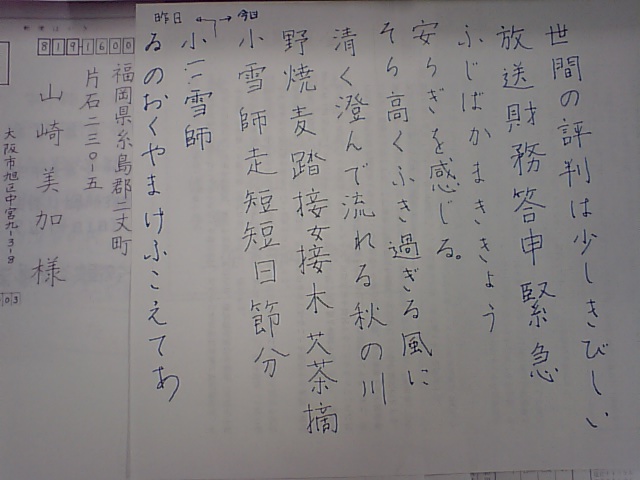 世間の評判は少しきびしい
放送財務答申緊急
ふじばかまききょう
安らぎを感じる。
そら高くふき過ぎる風に
清く澄んで流れる秋の川
野焼麦踏接女接木 茶摘
小雪師走短短日節分
昨日 ←→ 今日
小 雪師
るのおくやまけふこえてあ
8191600
福岡県糸島郡二丈町
片石二三〇-五
山崎美加様
大阪市旭区中宮九-3-8
03